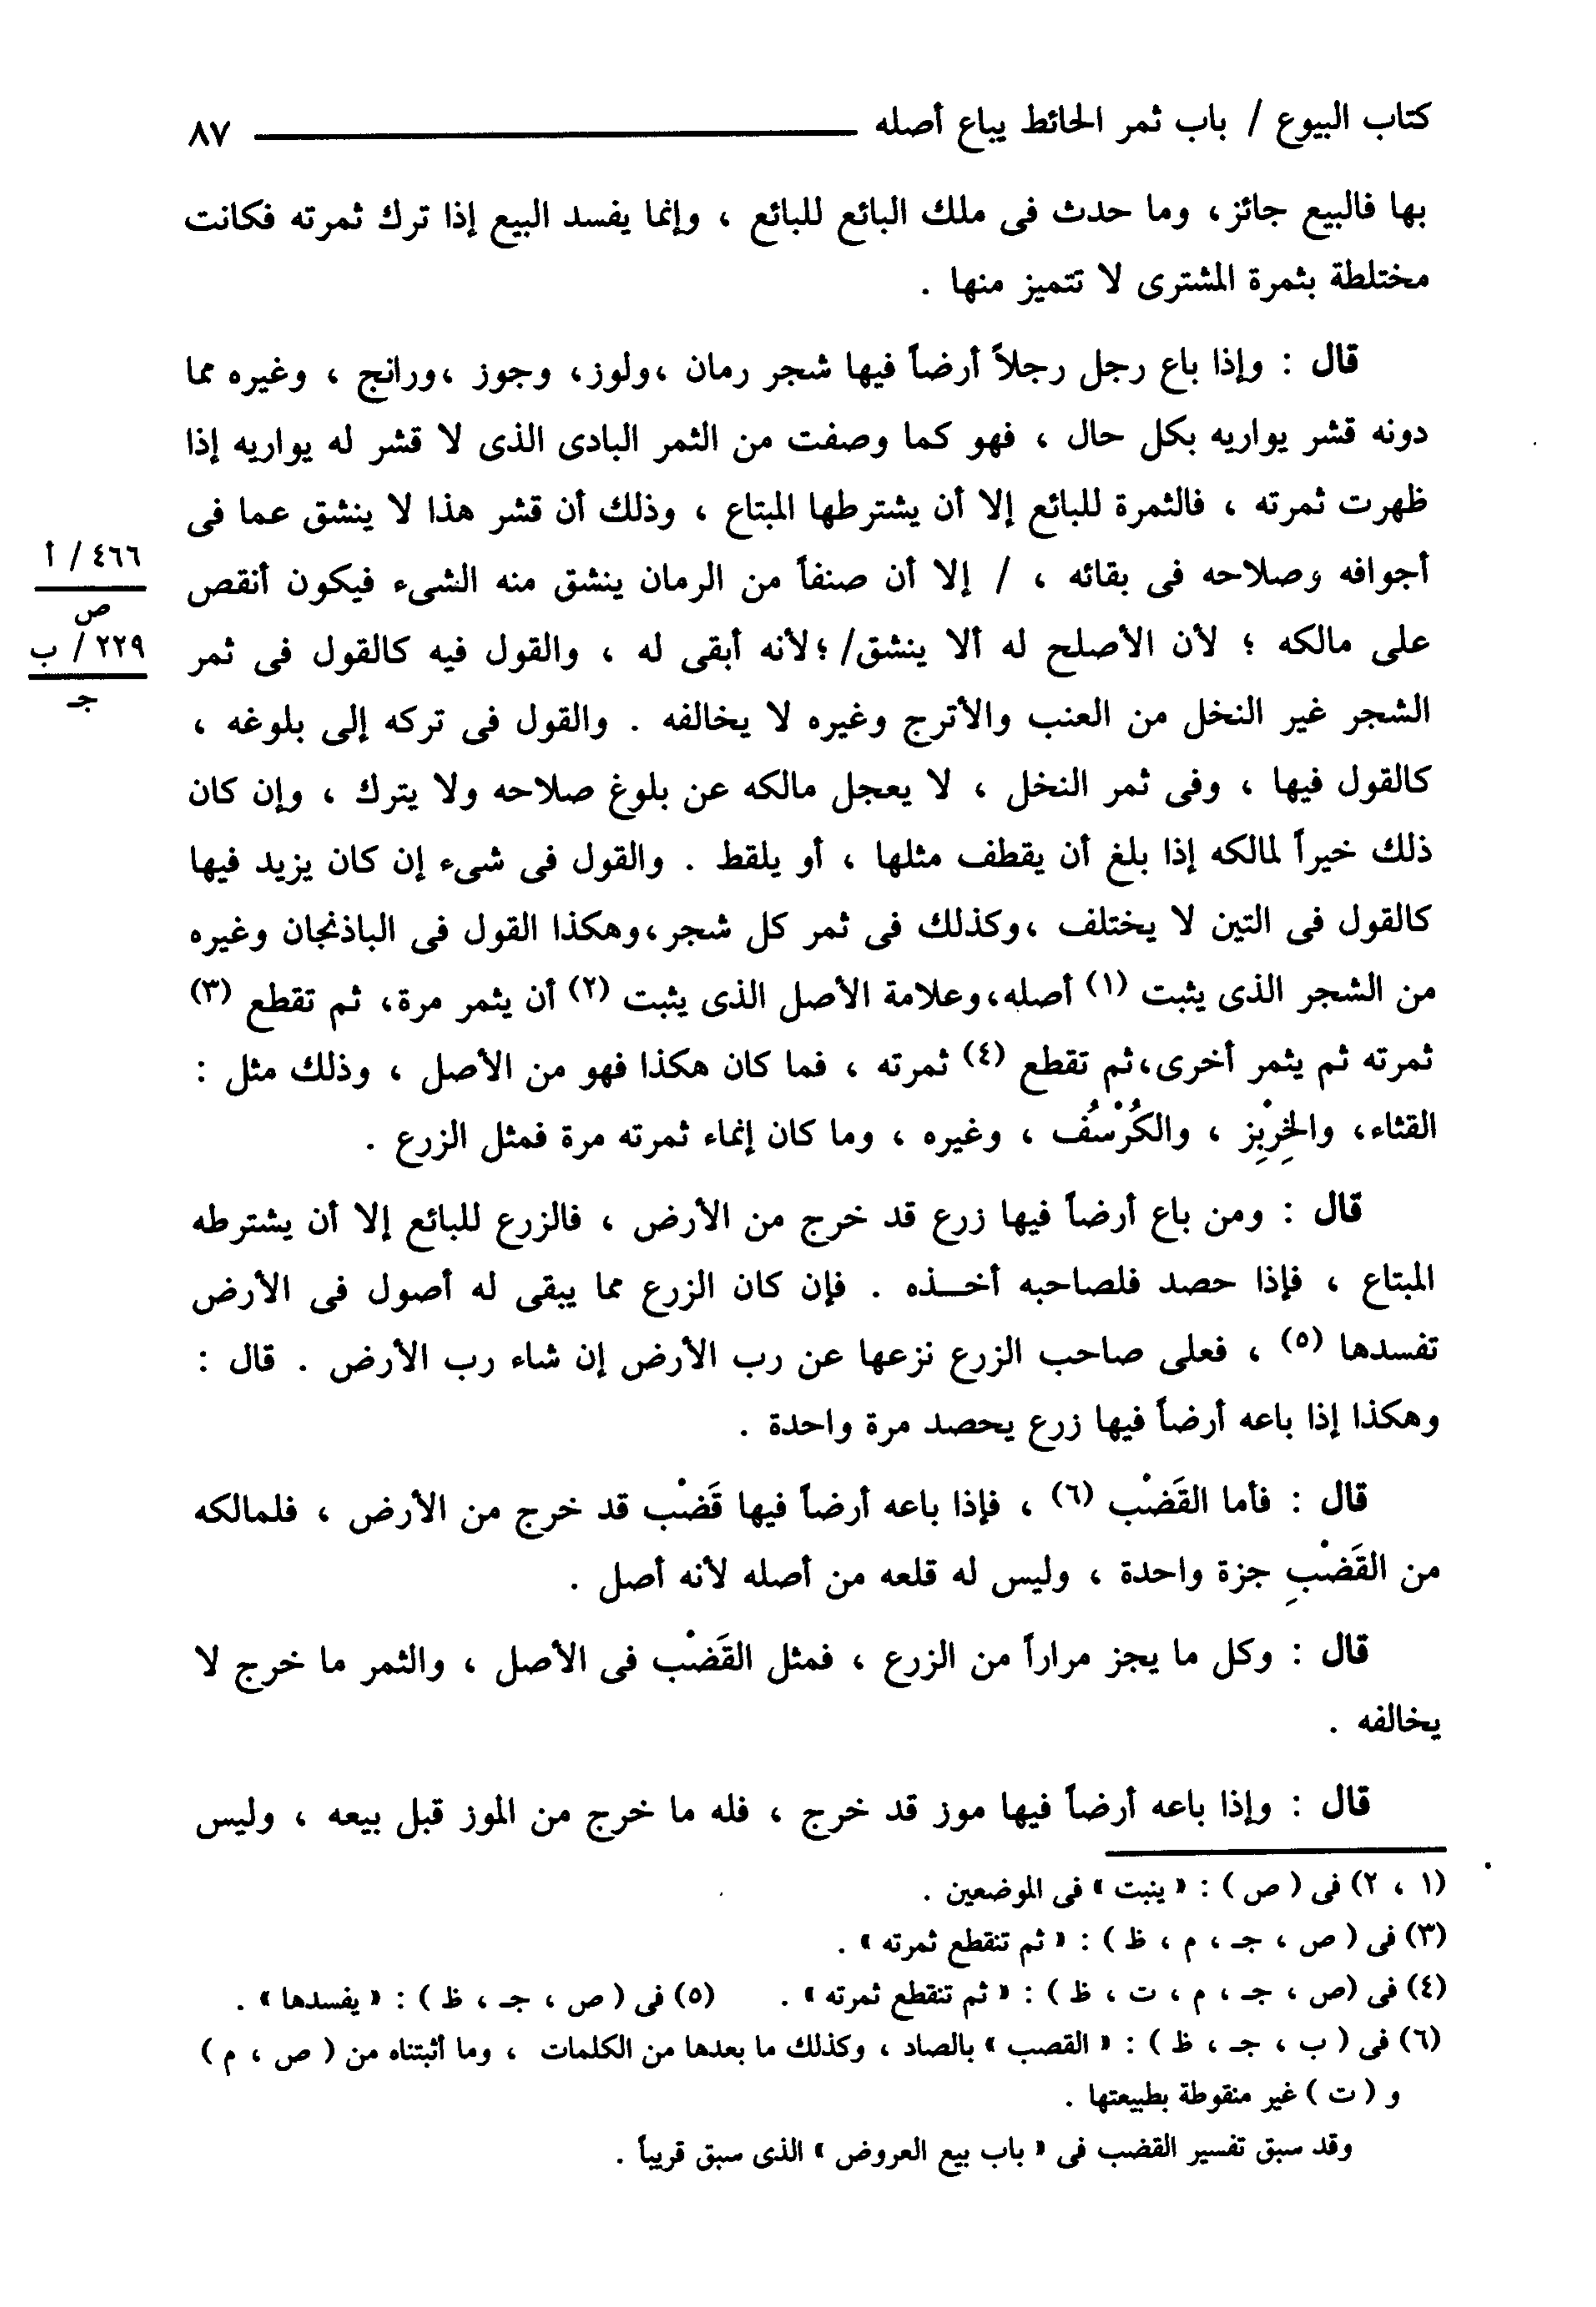 كتاب البيوع / باب ثمر الحائط يباع أصله ٨٧
بها فالبيع جائز، وما حدث فى ملك البائع للبائع ، وإنما يفسد البيع إذا ترك ثمرته فكانت
مختلطة بثمرة المشترى لا تتميز منها .
قال : وإذا باع رجل رجلاً أرضاً فيها شجر رمان ،ولوز، وجوز ،ورانج ، وغيره مما
دونه قشر يواريه بكل حال ، فهو كما وصفت من الثمر البادى الذى لا قشر له يواريه إذا
ظهرت ثمرته ، فالثمرة للبائع إلا أن يشترطها المبتاع ، وذلك أن قشر هذا لا ينشق عما فى
أجوافه وصلاحه فى بقائه ، / إلا أن صنفاً من الرمان ينشق منه الشىء فيكون أنقص
على مالكه ؛ لأن الأصلح له ألا ينشق/ ؛لأنه أبقى له ، والقول فيه كالقول فى ثمر
الشجر غير النخل من العنب والأترج وغيره لا يخالفه . والقول فى تركه إلى بلوغه ،
كالقول فيها ، وفى ثمر النخل ، لا يعجل مالكه عن بلوغ صلاحه ولا يترك ، وإن كان
ذلك خيراً لمالكه إذا بلغ أن يقطف مثلها ، أو يلقط . والقول فى شىء إن كان يزيد فيها
كالقول فى التين لا يختلف ،وكذلك فى ثمر كل شجر،وهكذا القول فى الباذنجان وغيره
من الشجر الذى يثبت (١) أصله،وعلامة الأصل الذى يثبت (٢) أن يثمر مرة، ثم تقطع (٣)
ثمرته ثم يثمر أخرى،ثم تقطع (٤) ثمرته ، فما كان هكذا فهو من الأصل ، وذلك مثل :
القثاء، والخِرْبِز ، والكُرْسُف ، وغيره ، وما كان إنماء ثمرته مرة فمثل الزرع .
قال : ومن باع أرضاً فيها زرع قد خرج من الأرض ، فالزرع للبائع إلا أن يشترطه
المبتاع ، فإذا حصد فلصاحبه أخـــذه . فإن كان الزرع مما يبقى له أصول فى الأرض
تفسدها (٥) ، فعلى صاحب الزرع نزعها عن رب الأرض إن شاء رب الأرض . قال :
وهكذا إذا باعه أرضاً فيها زرع يحصد مرة واحدة .
قال : فأما القَضْب (٦) ، فإذا باعه أرضاً فيها قَضْب قد خرج من الأرض ، فلمالكه
من القَضْبِ جزة واحدة ، وليس له قلعه من أصله لأنه أصل .
قال : وكل ما يجز مراراً من الزرع ، فمثل القَضْب فى الأصل ، والثمر ما خرج لا
يخالفه .
قال : وإذا باعه أرضاً فيها موز قد خرج ، فله ما خرج من الموز قبل بيعه ، وليس
٤٦٦ / أ
ص
٢٢٩ / ب
جـ
(١ ، ٢) فى ( ص ) : « ينبت » فى الموضعين .
(٣) فى ( ص ، جـ ، م ، ظ ) : « ثم تنقطع ثمرته » .
(٤) فى (ص ، جـ ، م ، ت ، ظ ) : « ثم تنقطع ثمرته » . (٥) فى ( ص ، جـ ، ظ ) : « يفسدها » .
(٦) فى ( ب ، جـ ، ظ ) : « القصب » بالصاد ، وكذلك ما بعدها من الكلمات ، وما أثبتناه من ( ص ، م )
و ( ت ) غير منقوطة بطبيعتها .
وقد سبق تفسير القضب فى « باب بيع العروض » الذى سبق قريباً .